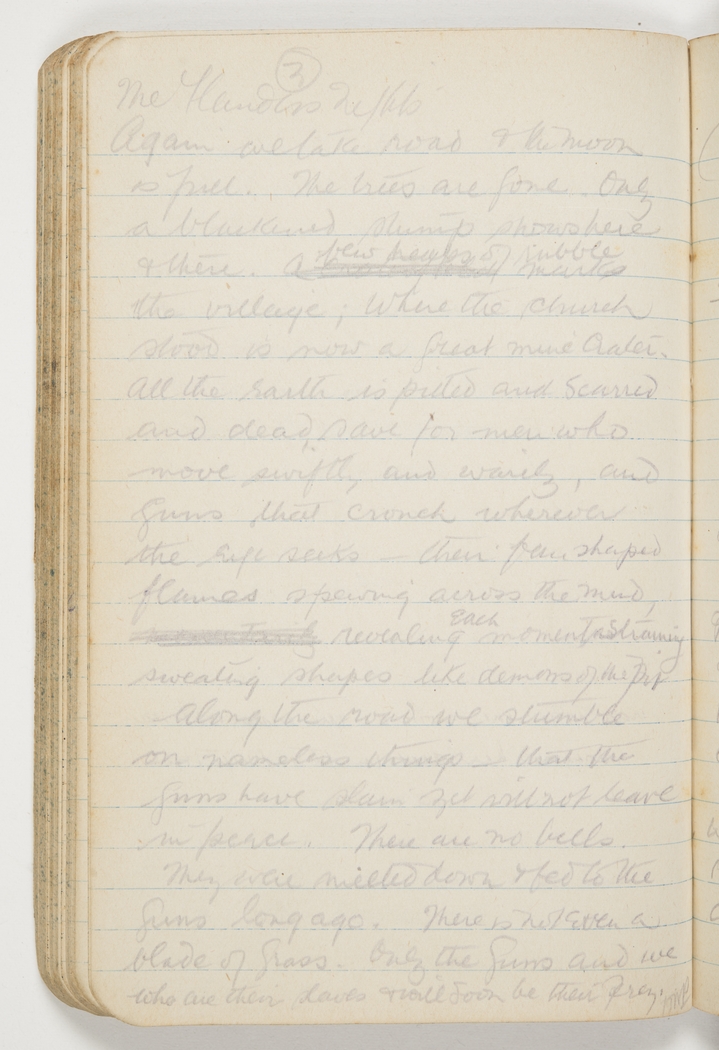 3
The Flanders Nights
Again we take road & the moon
is full. The trees are gone. Only
a blackened stump shows here
& there. A few heaps of rubble marks
the village; Where the church
stood is now a great mine Crater.
All the Earth is pitted and Scarred
and dead, save for men who
move swiftly and warily, and
Guns that crouch wherever
the Eye seeks — their fan shaped
flames spewing across the mud,
revealing Each moment straining
sweating shapes like demons of the Pit
Along the road we stumble
on nameless things — that the
Guns have slain yet will not leave
in peace. There are no bells.
They were melted down & fed to the
Guns long ago. There is not Even a
blade of Grass. Only the Guns and we
who are their slaves & will soon be their Prey.